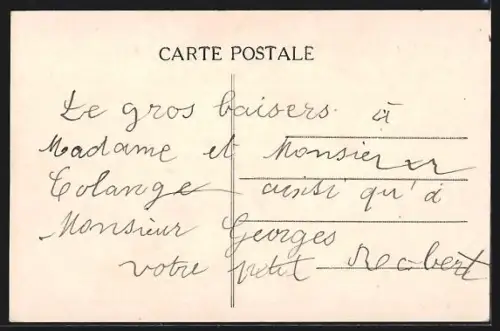 CARTE POSTALE
De gros baisers à
Madame et Monsieur
Colange ainsi qu'à
Monsieur Georges
votre petit Robert